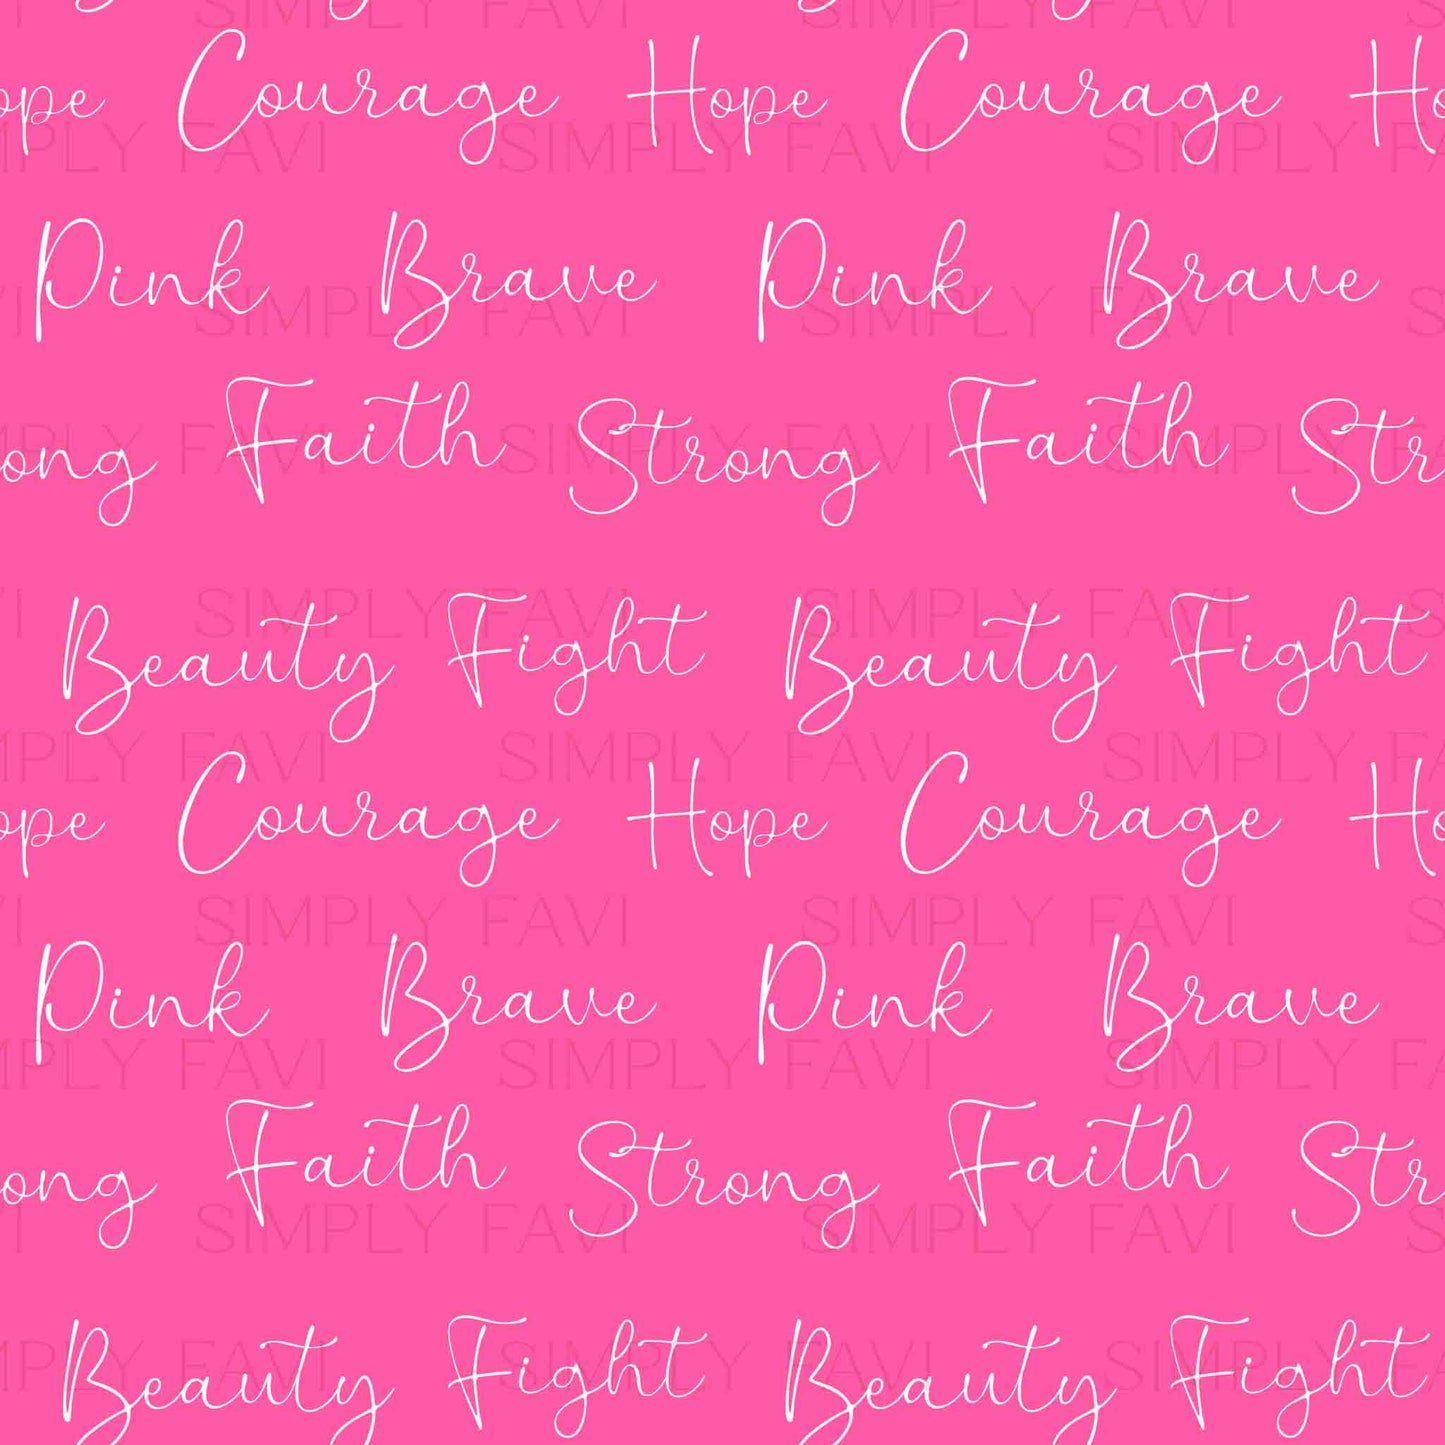 SIMPLY FAVI SIMPLY FAVI
ope Courage Hope Courage Ho
MPLY FAVI SIMPLY FAVI SIMPLY FA
Pink Brave Pink Brave
SIMPLY FAVI SIMPLY FAVI
ong Faith Strong Faith Str
MPLY FAVI SIMPLY FAVI SIMPLY FA
SIMPLY FAVI SIMPLY FAVI
Beauty Fight Beauty Fight
MPLY FAVI SIMPLY FAVI SIMPLY FA
ope Courage Hope Courage Ho
SIMPLY FAVI SIMPLY FAVI
Pink Brave Pink Brave
MPLY FAVI SIMPLY FAVI SIMPLY FA
ong Faith Strong Faith Str
SIMPLY FAVI SIMPLY FAVI
Beauty Fight Beauty Fight
MPLY FAVI SIMPLY FAVI SIMPLY FA